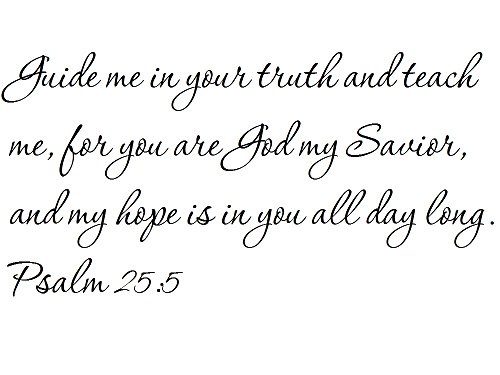 Guide me in your truth and teach
me, for you are God my Savior,
and my hope is in you all day long.
Psalm 25:5